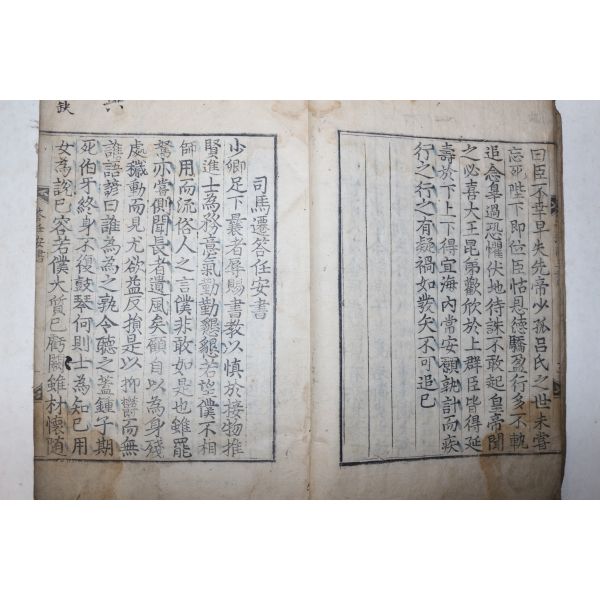 曰臣不幸早失先帝少孤吕氏之世未甞
忘死陛下即位臣怙恩德驕盈行多不軌
追念辠過恐懼伏地待誅不敢起皇帝聞
之必喜大王昆弟歡欣於上群臣皆得延
壽於下上下得宜海內常安願孰計而疾
行之行之有疑禍如發矢不可追已
司馬遷答任安書
少卿足下曩者辱賜書教以慎於接物推
賢進士為務意氣勤勤懇懇若望僕不相
師用而流俗人之言僕非敢如是也雖罷
駑亦甞側聞長者遺風矣顧自以為身殘
處穢動而見尤欲益反損是以抑鬱而無
誰語諺曰誰為為之孰令聽之蓋鍾子期
死伯牙終身不復鼓琴何則士為知己用
女為說己容若僕大質已虧闕雖材懷隨
任安書